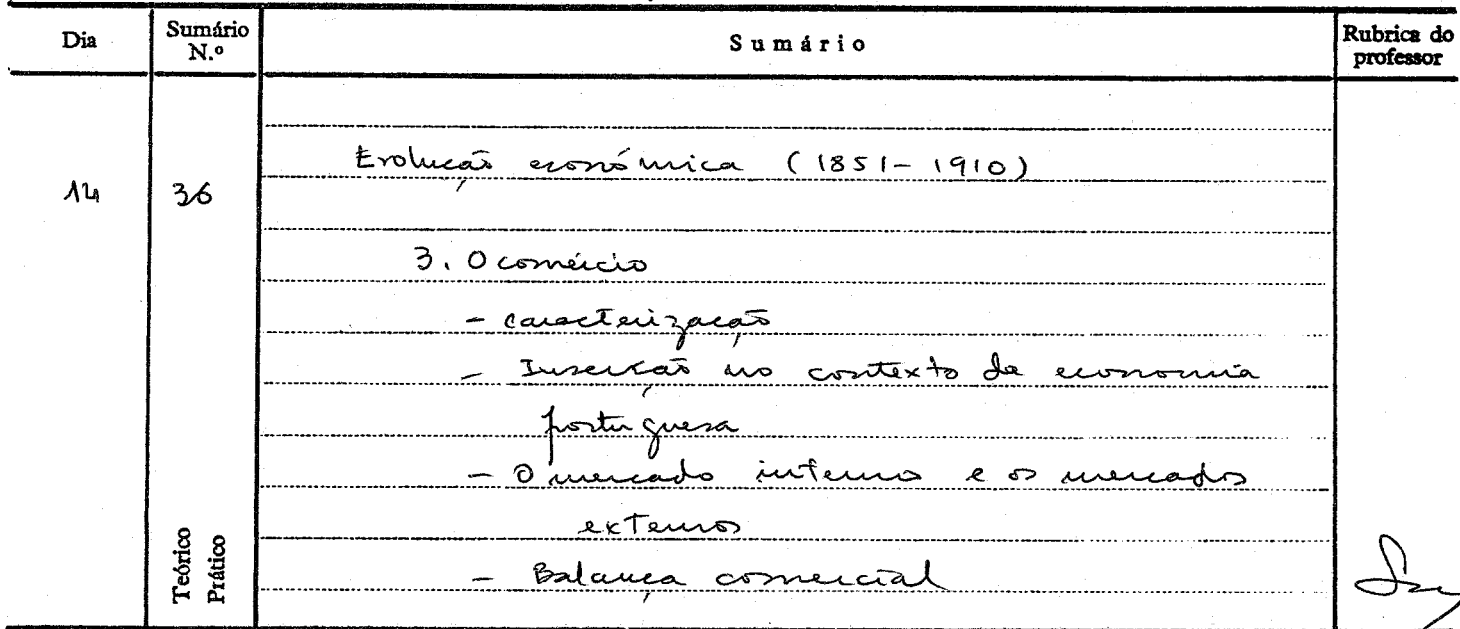 Dia
Sumário N.º
Sumário
Rubrica do professor
14
36
Teórico
Prático
Evolução económica (1851-1910)
3. O comércio
- caracterização
- Inserção no contexto da economia
portuguesa
- O mercado interno e os mercados
externos
- Balança comercial